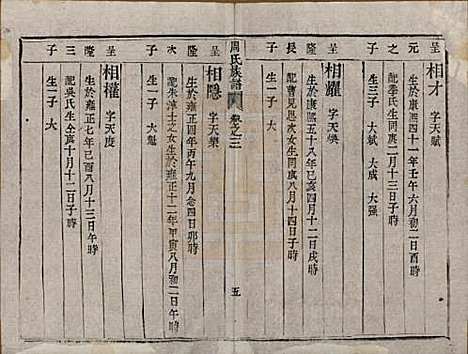 呈元之子
相才 字天斌
生於康熙四十一年壬午六月初二日酉時
配季氏生同庚二月初二日申時
生三子 大斌 大成 大强
呈隆長子
相躍 字天
生於康熙五十八年己亥四月十二日戌時
配曹見思次女生同庚八月十四日子時
生一子 大
周氏族譜 卷之三 五
呈隆次子
相隱 字天榮
生於雍正四年丙午九月念四日卯時
配朱淳士之女生於雍正十二年甲寅八月初二日午時
生一子 大魁
呈隆三子
相權 字天度
生於雍正七年己酉八月十三日午時
配吳氏生仝亥十月十二日子時
生一子 大